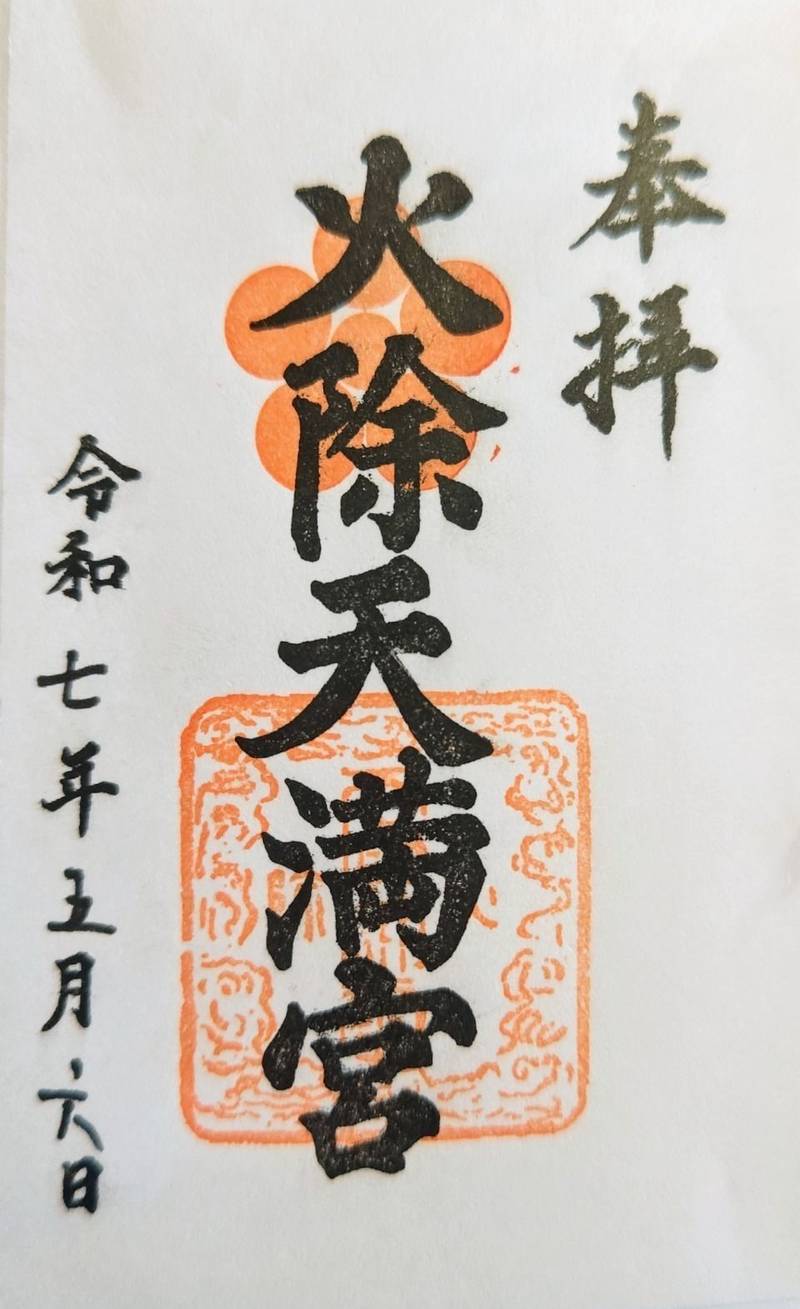 奉拝
火除天満宮
令和七年五月六日